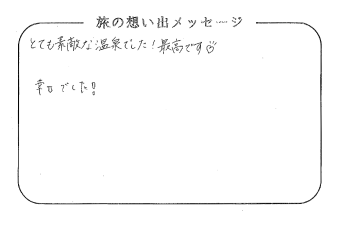 旅の想い出メッセージ
とても素敵な温泉でした！最高です
幸せでした!!